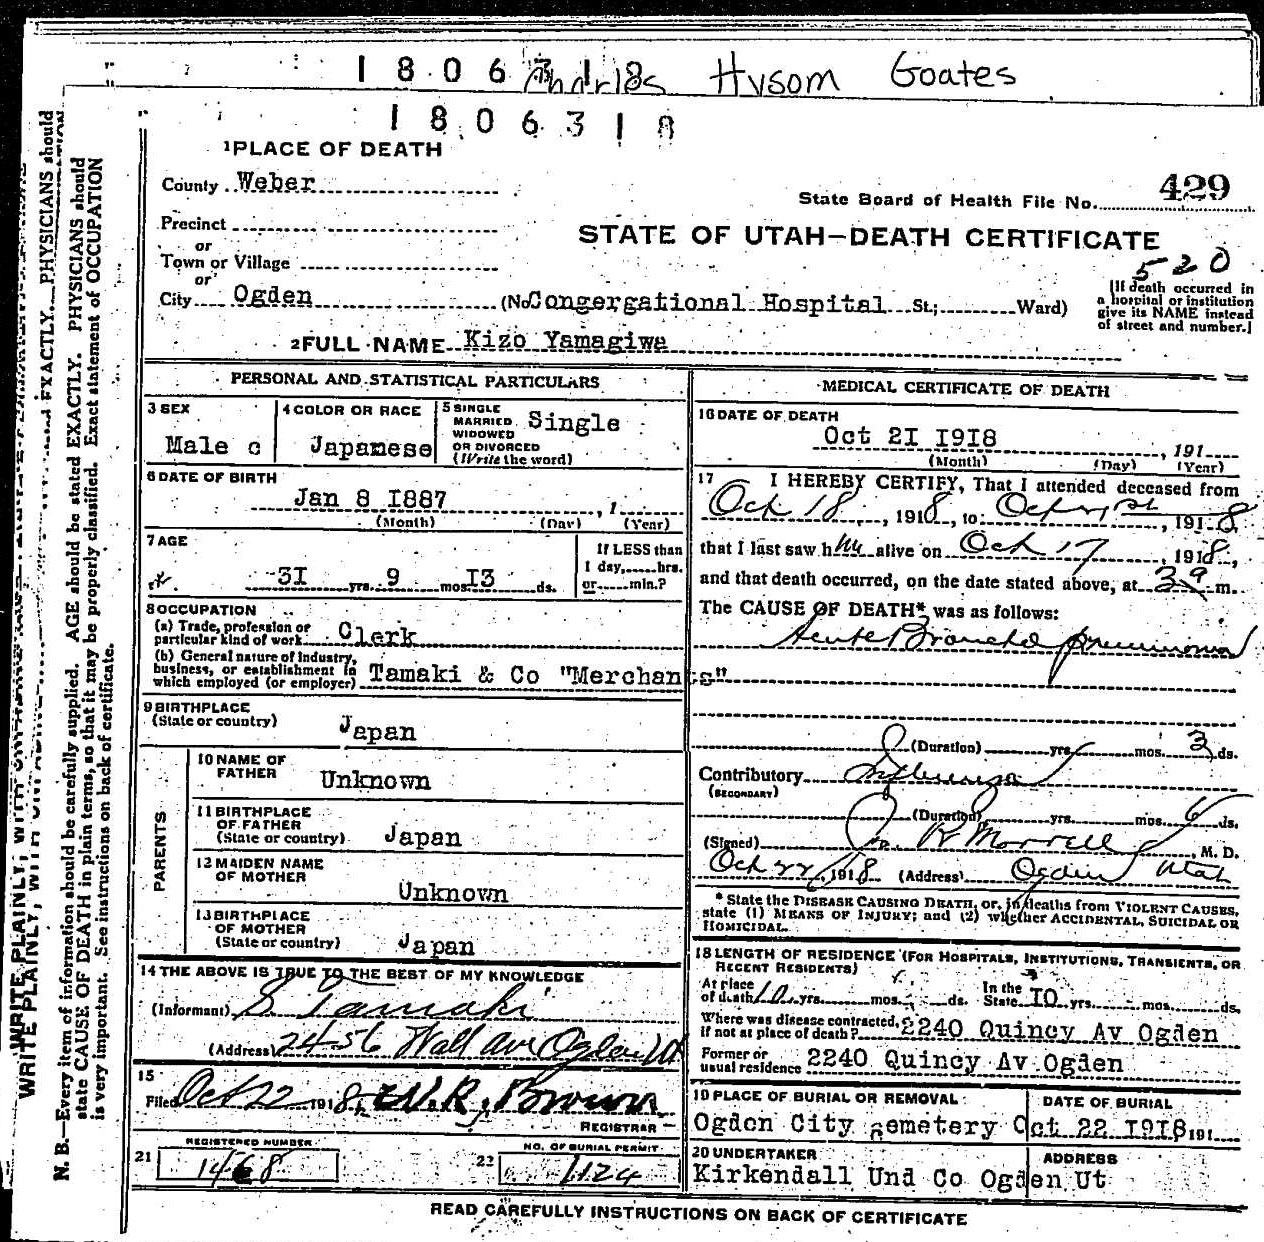 1 8 0 6 3 1 8 Hysom Goates
1 8 0 6 3 1 8
1 PLACE OF DEATH
County Weber
State Board of Health File No. 429
Precinct
or
STATE OF UTAH—DEATH CERTIFICATE
Town or Village
520
or
City Ogden (No Congergational Hospital St; Ward)
[If death occurred in a hospital or institution give its NAME instead of street and number.]
2 FULL NAME Kizo Yamagiwa
PERSONAL AND STATISTICAL PARTICULARS
3 SEX
Male c
4 COLOR OR RACE
Japanese
5 SINGLE
MARRIED
WIDOWED
OR DIVORCED
(Write the word)
Single
6 DATE OF BIRTH
Jan 8 I887 , 1
(Month) (Day) (Year)
7 AGE
3I yrs. 9 mos. I3 ds.
If LESS than
1 day, hrs.
or min.?
8 OCCUPATION
(a) Trade, profession or
particular kind of work Clerk
(b) General nature of industry,
business, or establishment in
which employed (or employer) Tamaki & Co "Merchants"
9 BIRTHPLACE
(State or country) Japan
PARENTS
10 NAME OF
FATHER Unknown
11 BIRTHPLACE
OF FATHER
(State or country) Japan
12 MAIDEN NAME
OF MOTHER Unknown
13 BIRTHPLACE
OF MOTHER
(State or country) Japan
14 THE ABOVE IS TRUE TO THE BEST OF MY KNOWLEDGE
(Informant) S. Tamaki
(Address) 2456 Wall av Ogden Ut
15
Filed Oct 22 1918, W. R. Brown
REGISTRAR
REGISTERED NUMBER
21 1468
NO. OF BURIAL PERMIT
22 1124
MEDICAL CERTIFICATE OF DEATH
16 DATE OF DEATH
Oct 2I I9I8 , 191
(Month) (Day) (Year)
17 I HEREBY CERTIFY, That I attended deceased from
Oct 18, 1918, to Oct 21st, 1918
that I last saw him alive on Oct 17, 1918,
and that death occurred, on the date stated above, at m.
The CAUSE OF DEATH* was as follows:
Acute Bronchial pneumonia
(Duration) yrs. mos. 3 ds.
Contributory Influenza
(SECONDARY)
(Duration) yrs. mos. 6 ds.
(Signed) R Morrell M. D.
Oct 22, 1918 (Address) Ogden Utah
* State the DISEASE CAUSING DEATH, or, in deaths from VIOLENT CAUSES,
state (1) MEANS OF INJURY; and (2) whether ACCIDENTAL, SUICIDAL OR
HOMICIDAL.
18 LENGTH OF RESIDENCE (FOR HOSPITALS, INSTITUTIONS, TRANSIENTS, OR
RECENT RESIDENTS)
At place
of death 10 yrs. mos. ds.
In the
State I0 yrs. mos. ds.
Where was disease contracted,
if not at place of death? 2240 Quincy Av Ogden
Former or
usual residence 2240 Quincy Av Ogden
19 PLACE OF BURIAL OR REMOVAL
Ogden City Cemetery
DATE OF BURIAL
Oct 22 I9I8 191
20 UNDERTAKER
Kirkendall Und Co
ADDRESS
Ogden Ut
READ CAREFULLY INSTRUCTIONS ON BACK OF CERTIFICATE
N. B.—Every item of information should be carefully supplied. AGE should be stated EXACTLY. PHYSICIANS should
state CAUSE OF DEATH in plain terms, so that it may be properly classified. Exact statement of OCCUPATION
is very important. See instructions on back of certificate.